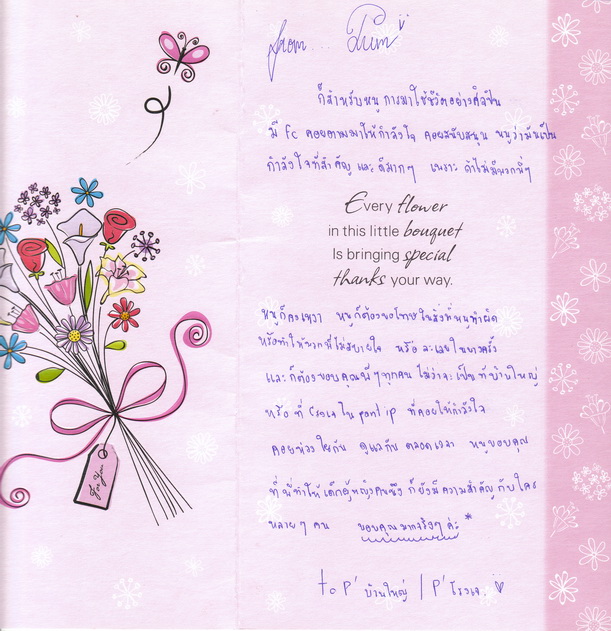 from...
ก็สำหรับหนู การมาใช้ชีวิตอย่าง
มี Fc คอยตามมาให้กำลังใจ คอยสนับสนุน หนูว่ามันเป็น
กำลังใจที่สำคัญ และดีมากๆ เพราะ ถ้าไม่มีพวกพี่ๆ
Every flower
in this little bouquet
Is bringing special
thanks your way.
หนูก็คงเหงา หนูก็ต้องขอโทษในสิ่งที่หนูทำผิด
หรือทำให้พวกพี่ไม่สบายใจ หรือ ละเลยในบางครั้ง
และ ก็ต้องขอบคุณพี่ๆทุกคน ไม่ว่าจะเป็น ที่บ้านใหญ่
หรือ ที่ ใน pantip ที่คอยให้กำลังใจ
คอยห่วงใยกัน ดูแลกัน ตลอดเวลา หนูขอบคุณ
ที่พี่ทำให้เด็กผู้หญิงคนนึง ก็ยังมีความสำคัญ กับใคร
หลายๆ คน ขอบคุณมากจริงๆ ค่ะ *
to P' บ้านใหญ่ / P' โรงเจ
For You